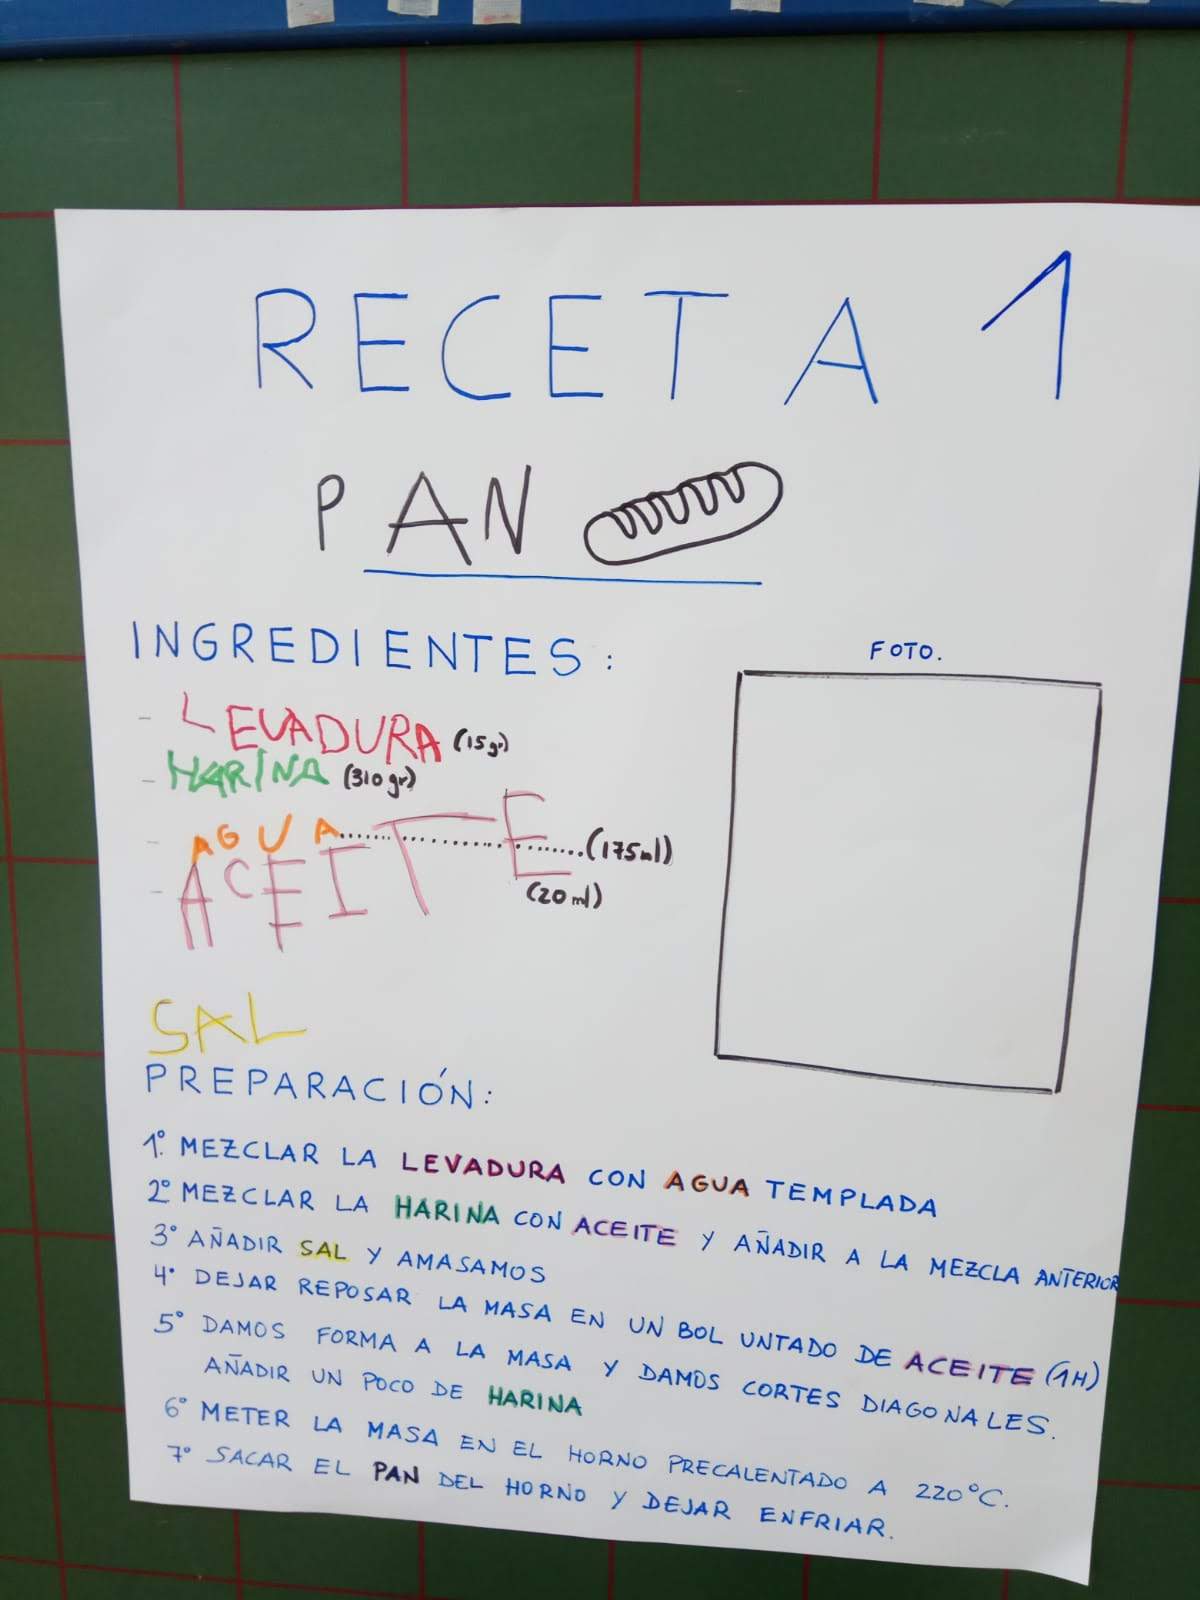 RECETA 1
PAN
INGREDIENTES:
FOTO.
- LEVADURA (15gr)
- HARINA (310 gr)
- AGUA..................(175ml)
- ACEITE (20 ml)
SAL
PREPARACIÓN:
1º. MEZCLAR LA LEVADURA CON AGUA TEMPLADA
2º MEZCLAR LA HARINA CON ACEITE Y AÑADIR A LA MEZCLA ANTERIOR
3º AÑADIR SAL Y AMASAMOS
4º DEJAR REPOSAR LA MASA EN UN BOL UNTADO DE ACEITE (1H)
5º DAMOS FORMA A LA MASA Y DAMOS CORTES DIAGONALES.
AÑADIR UN POCO DE HARINA
6º METER LA MASA EN EL HORNO PRECALENTADO A 220ºC.
7º SACAR EL PAN DEL HORNO Y DEJAR ENFRIAR.